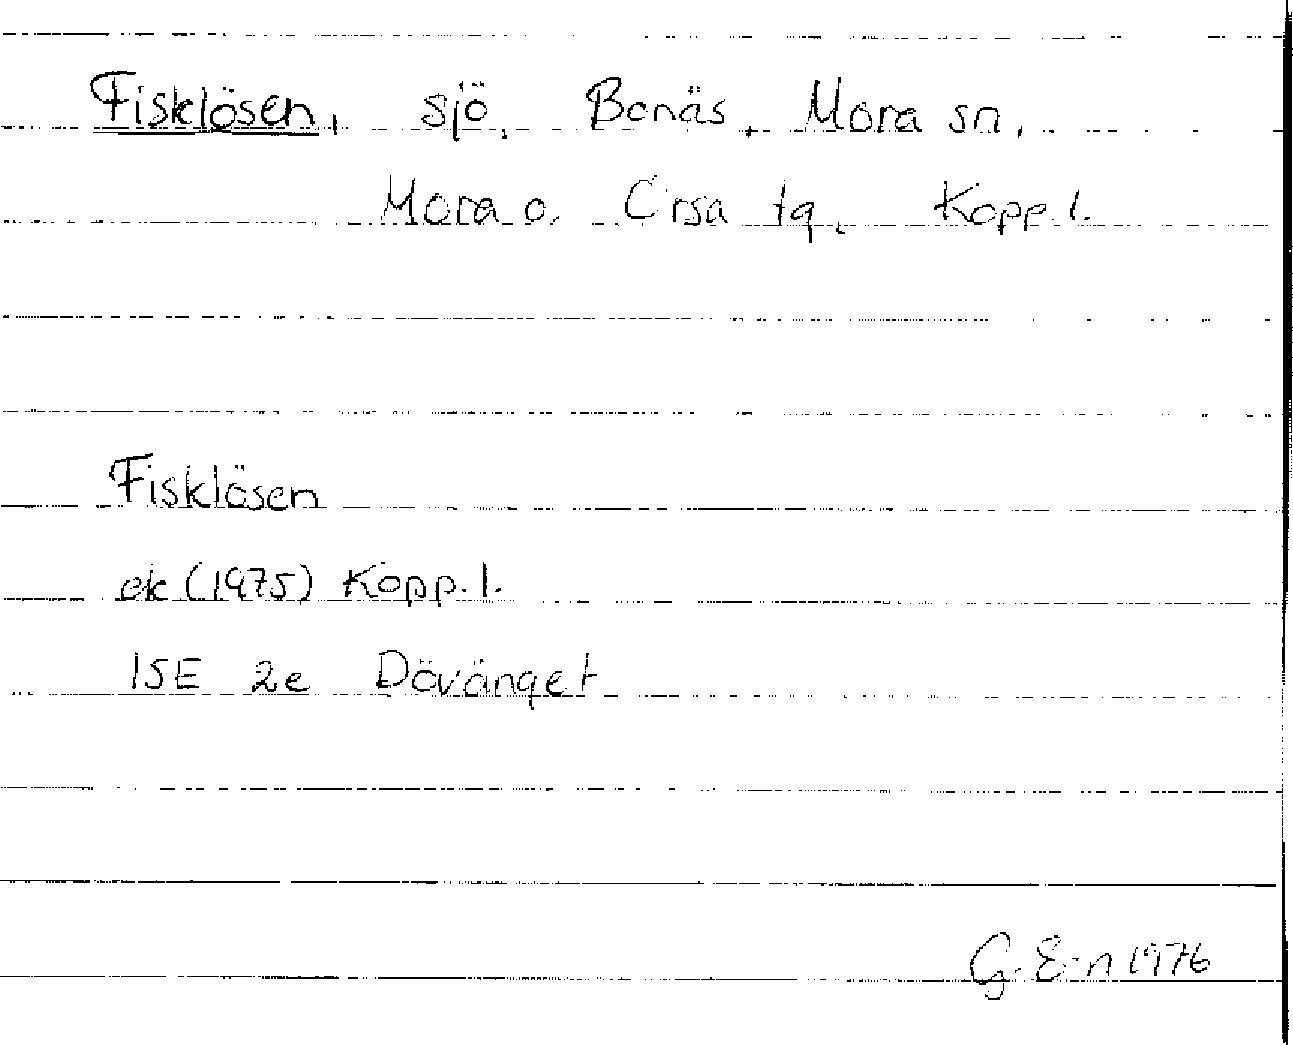 Fisklösen, sjö, Bonäs, Mora sn,
Mora o. Orsa tg, Kopp. l.
Fisklösen
ek (1975) Kopp. l.
15E 2e Dövänget
G. E-n 1976